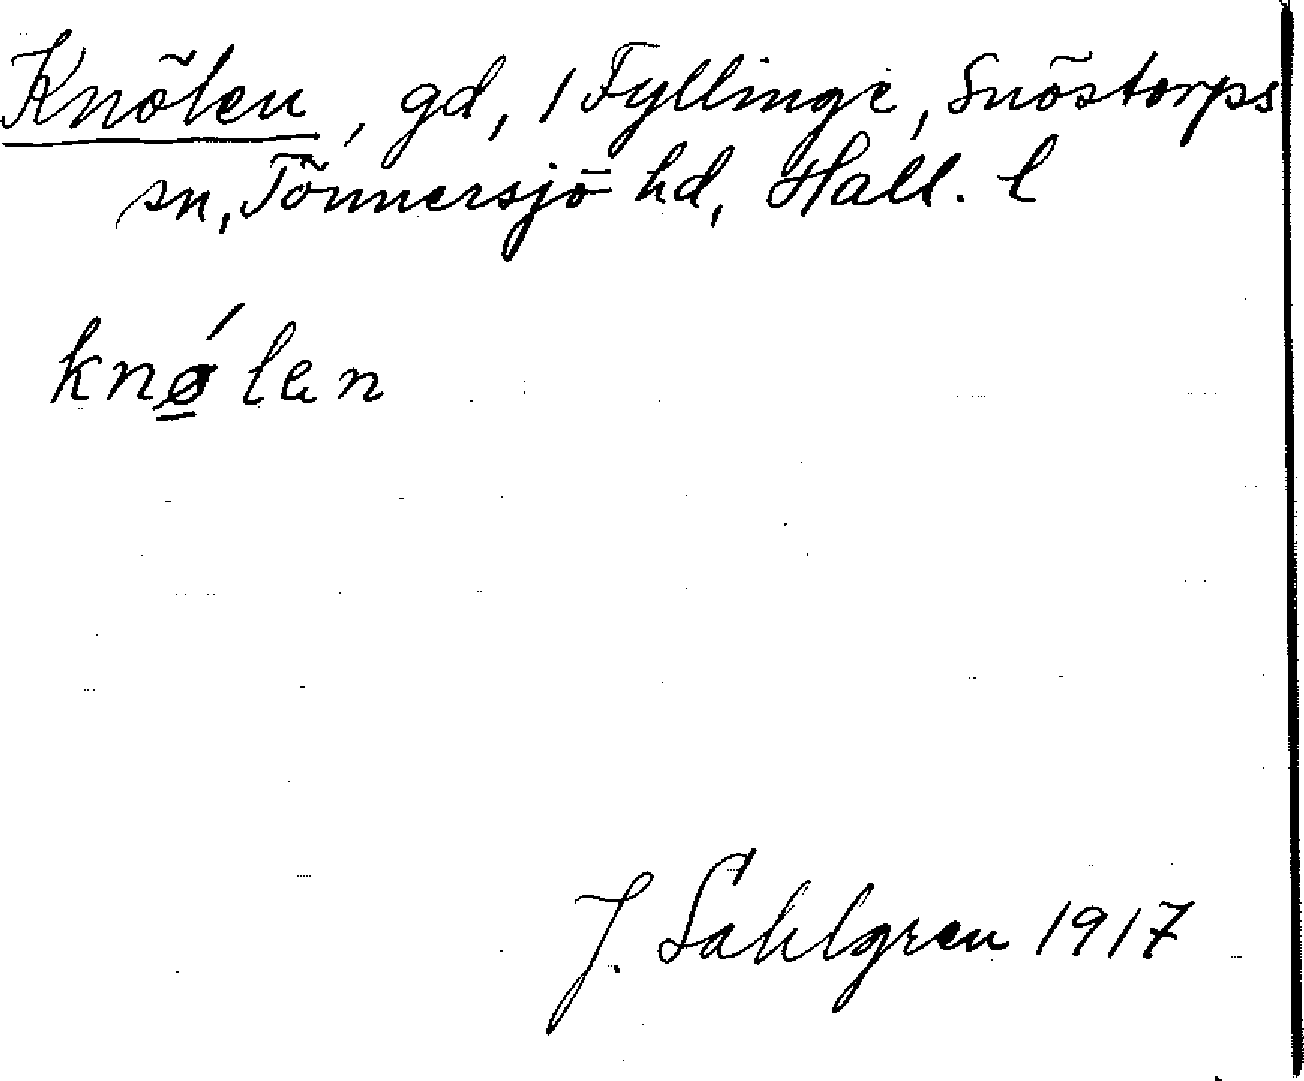 Knölen, gd, 1 Fyllinge, Snöstorps
sn, Tönnersjö hd, Hall. l
knǿ̲len
J. Sahlgren 1917